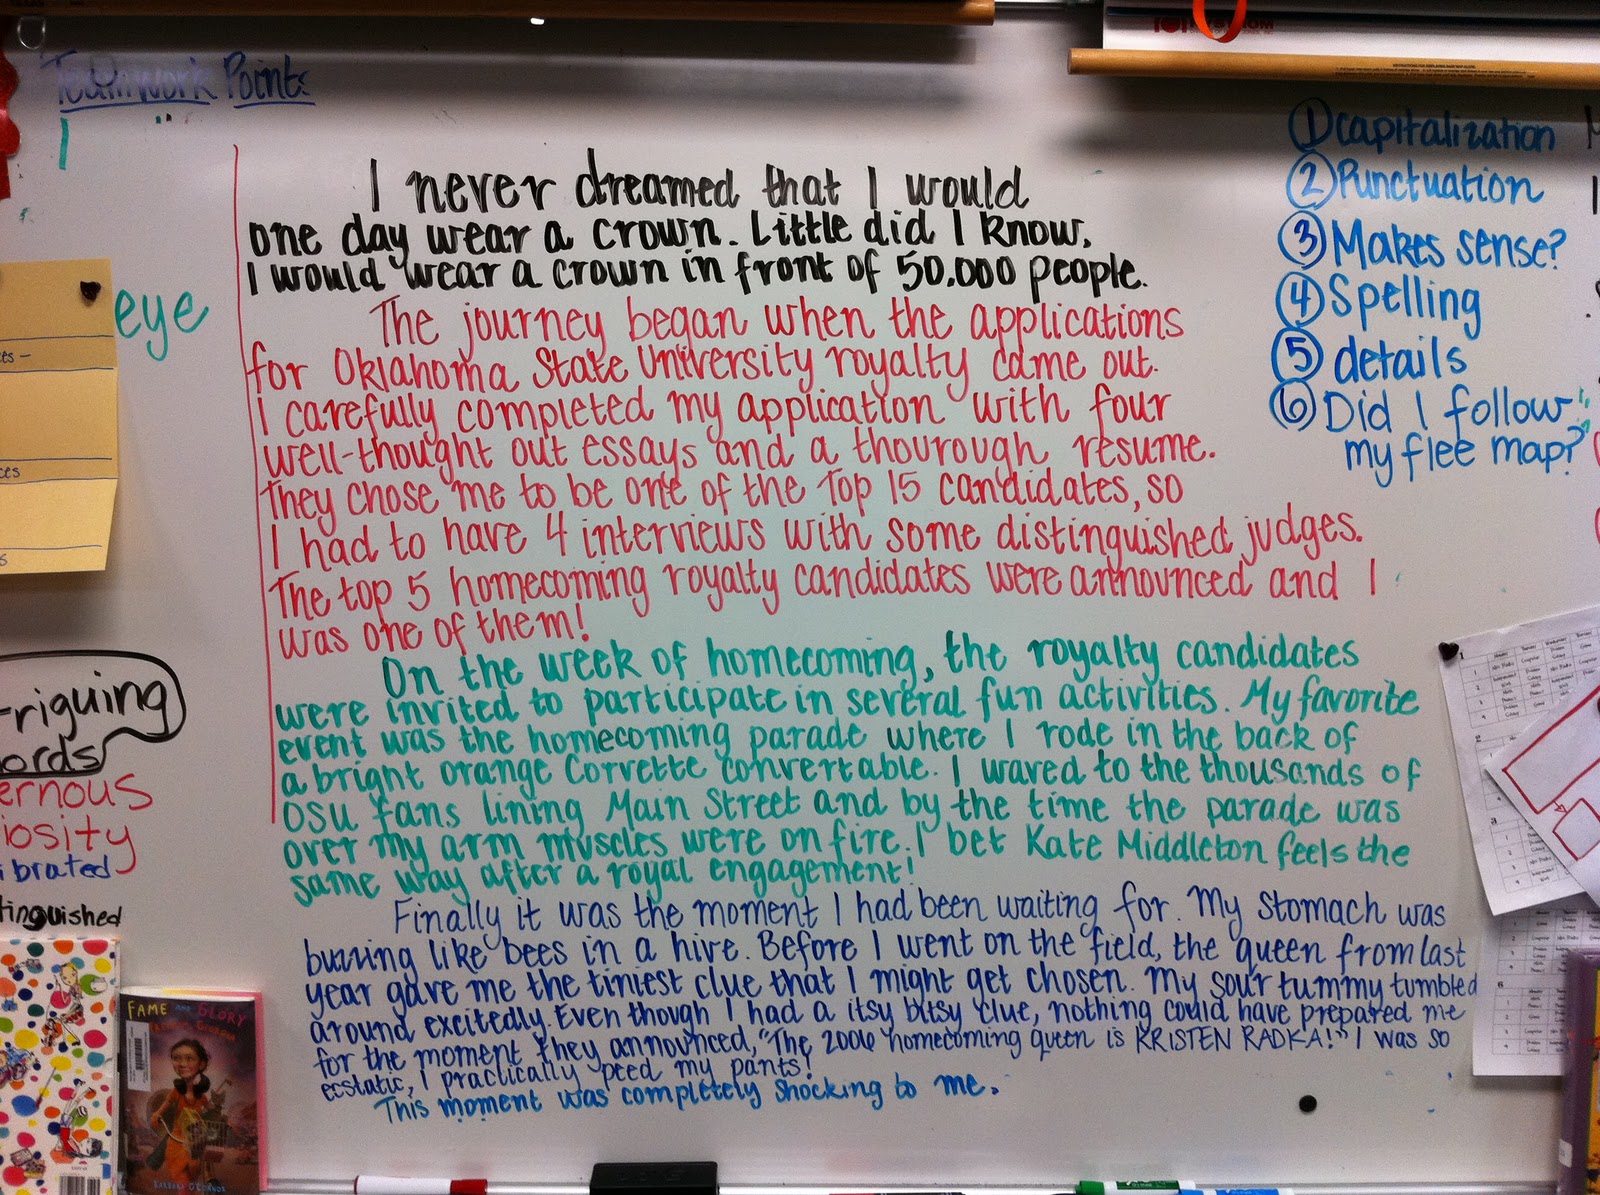 Teamwork Points
I
eye
I never dreamed that I would
one day wear a crown. Little did I know,
I would wear a crown in front of 50,000 people.
The journey began when the applications
for Oklahoma State University royalty came out.
I carefully completed my application with four
well-thought out essays and a thourough resume.
They chose me to be one of the Top 15 candidates, so
I had to have 4 interviews with some distinguished judges.
The top 5 homecoming royalty candidates were announced and I
was one of them!
On the week of homecoming, the royalty candidates
were invited to participate in several fun activities. My favorite
event was the homecoming parade where I rode in the back of
a bright orange Corvette convertable. I waved to the thousands of
OSU fans lining Main Street and by the time the parade was
over my arm muscles were on fire. I bet Kate Middleton feels the
same way after a royal engagement!
Finally it was the moment I had been waiting for. My stomach was
buzzing like bees in a hive. Before I went on the field, the queen from last
year gave me the tiniest clue that I might get chosen. My sour tummy tumbled
around excitedly. Even though I had a itsy bitsy clue, nothing could have prepared me
for the moment they announced, "The 2006 homecoming queen is KRISTEN RADKA!" I was so
ecstatic, I practically peed my pants!
This moment was completely shocking to me.
① capitalization
② Punctuation
③ Makes sense?
④ Spelling
⑤ details
⑥ Did I follow
my flee map?
triguing
ords
ernous
iosity
ibrated
tinguished
FAME AND GLORY
BARBARA O'CONNOR